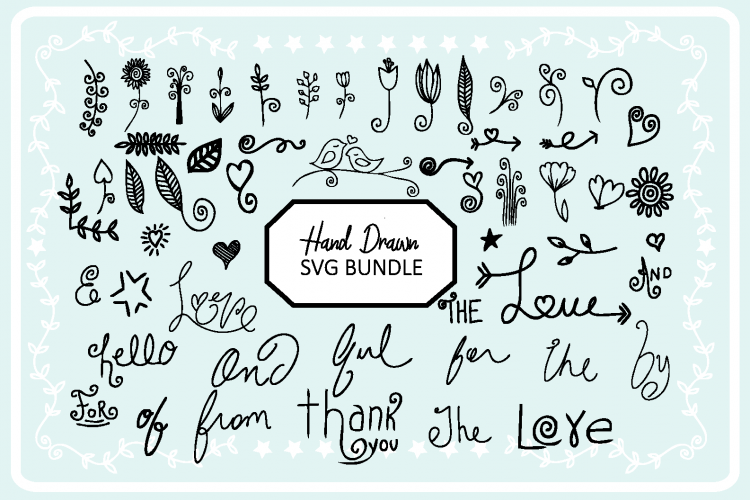 Hand Drawn
SVG BUNDLE
AND
&
Love
THE Love
hello and girl for the by
FOR of from thank you The Love